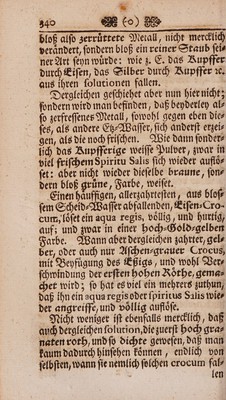 340 (o)
bloß also zerrüttete Metall, nicht mercklich
verändert, sondern bloß ein reiner Staub sei-
ner Art seyn würde: wie z. E. das Kupffer
durch Eisen, das Silber durch Kupffer ꝛc.
aus ihren solutionen fallen.
Dergleichen geschiehet aber nun hier nicht;
sondern wird man befinden, daß beyderley al-
so zerfressenes Metall, sowohl gegen eben die-
ses, als andere Etz-Wasser, sich anderst erzei-
gen, als die noch frischen. Wie dann sonder-
lich das Kupfferige weisse Pulver, zwar in
viel frischem Spiritu Salis sich wieder auflö-
set: aber nicht wieder dieselbe braune, son-
dern bloß grüne, Farbe, weiset.
Einen häuffigen, allerzahrtesten, aus blos-
sem Scheid-Wasser abfallenden, Eisen-Cro-
cum, löset ein aqua regis, völlig, und hurtig,
auf; und zwar in einer hoch-Gold-gelben
Farbe. Wann aber dergleichen zahrter, gel-
ber, oder auch nur Aschen-grauer Crocus,
mit Beyfügung des Eßigs, und wohl Ver-
schwindung der ersten hohen Röthe, gema-
chet wird; so hat es viel ein mehrers zuthun,
daß ihn ein aqua regis oder spiritus Salis wie-
der angreiffe, und völlig auflöse.
Nicht weniger ist ebenfalls mercklich, daß
auch dergleichen solution, die zuerst hoch gra-
naten roth, und so dichte gewesen, daß man
kaum dadurch hinsehen können, endlich von
selbsten, wann sie nemlich solchen crocum fal-
len